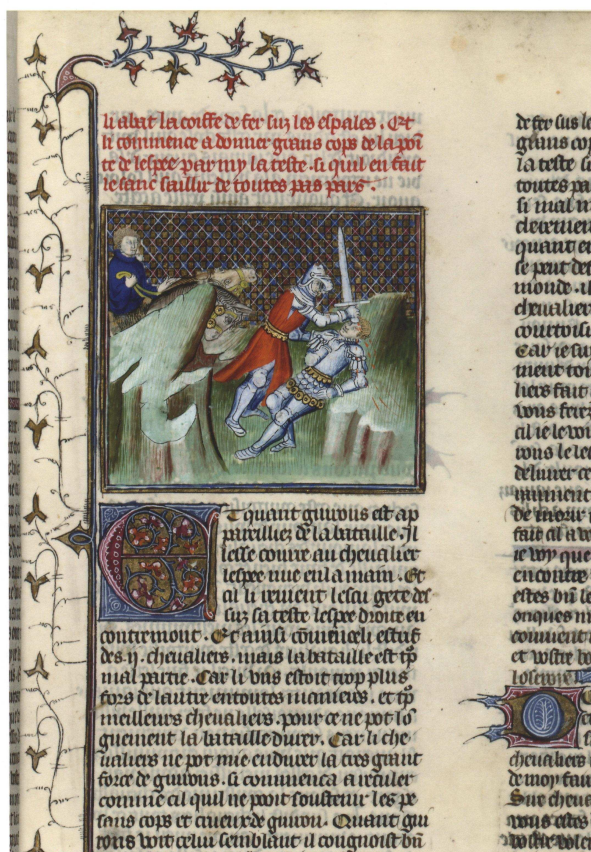 li abat la coiffe de fer suz les espales. Et
li commence a donner grans cops de la poi
te de lespee parmy la teste. si quil en fait
le sanc saillir de toutes pars pars.
Et quant guirons est ap
pareilliez de la bataille. Il
lesse courre au chevalier
lespee nue en la main. Et
cil li revient lescu gete des
suz sa teste lespee droite en
contremont. Et ainsi
des .ij. chevaliers. mais la bataille est tp
mal partie. Car li uns estoit trop plus
fors de lautre en toutes manieres. et tp
meilleurs chevaliers. pour ce ne pot lo
guement la bataille durer. Car li che
valiers ne pot mie endurer la tres grant
force de guirons. si commenca a reculer
comme cil quil ne pooit soustenir les pe
sans cops et crueux de guiron. Quant gui
rons voit celui semblant il cougnoist bn
de fer sus le
grans cop
la teste se
toutes pa
si mal
quant et
se peut def
monde. il
chevalier
courtoisi
Car ie sui
ment
liers fait
vous ferez
cil ie le voi
vous le
delivrer ce
de morir
fait cil a
ie voy que
encontre
estes bn le
onques
convient
et vostre bo
chevaliers
de moy fau
Sire cheva
vous estes
vostre